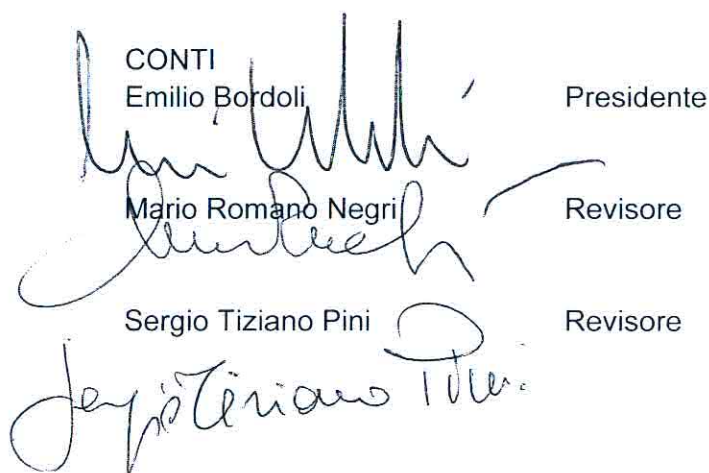 CONTI
Emilio Bordoli Presidente
Mario Romano Negri Revisore
Sergio Tiziano Pini Revisore
Sergio Tiziano Pini